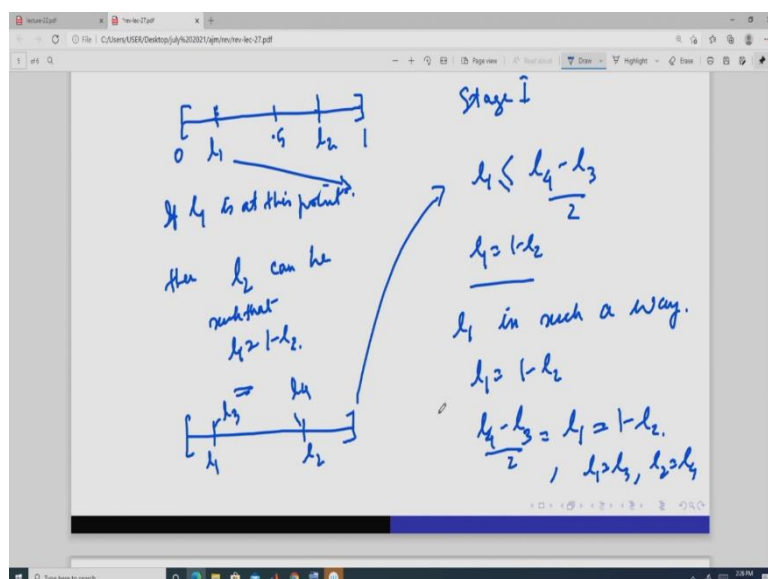 lecture-22.pdf
*rev-lec-27.pdf
File | C:/Users/USER/Desktop/july%202021/ajm/rev/rev-lec-27.pdf
5 of 6
Page view
Read aloud
Draw
Highlight
Erase
0 l₁ .5 l₂ 1
If l₁ is at this point.
then l₂ can be
such that
l₁ = 1-l₂.
l₃ l₄
l₁ l₂
Stage I
l₁ ≤ (l₄-l₃)/2
l₁ = 1-l₂
l₁ in such a way.
l₁ = 1-l₂
(l₄-l₃)/2 = l₁ = 1-l₂.
, l₁=l₃, l₂=l₄
Type here to search